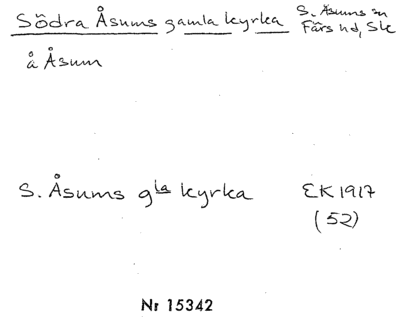 Södra Åsums gamla kyrka S. Åsums sn
Färs hd, Sk
å Åsum
S. Åsums gla kyrka EK 1917
(52)
Nr 15342